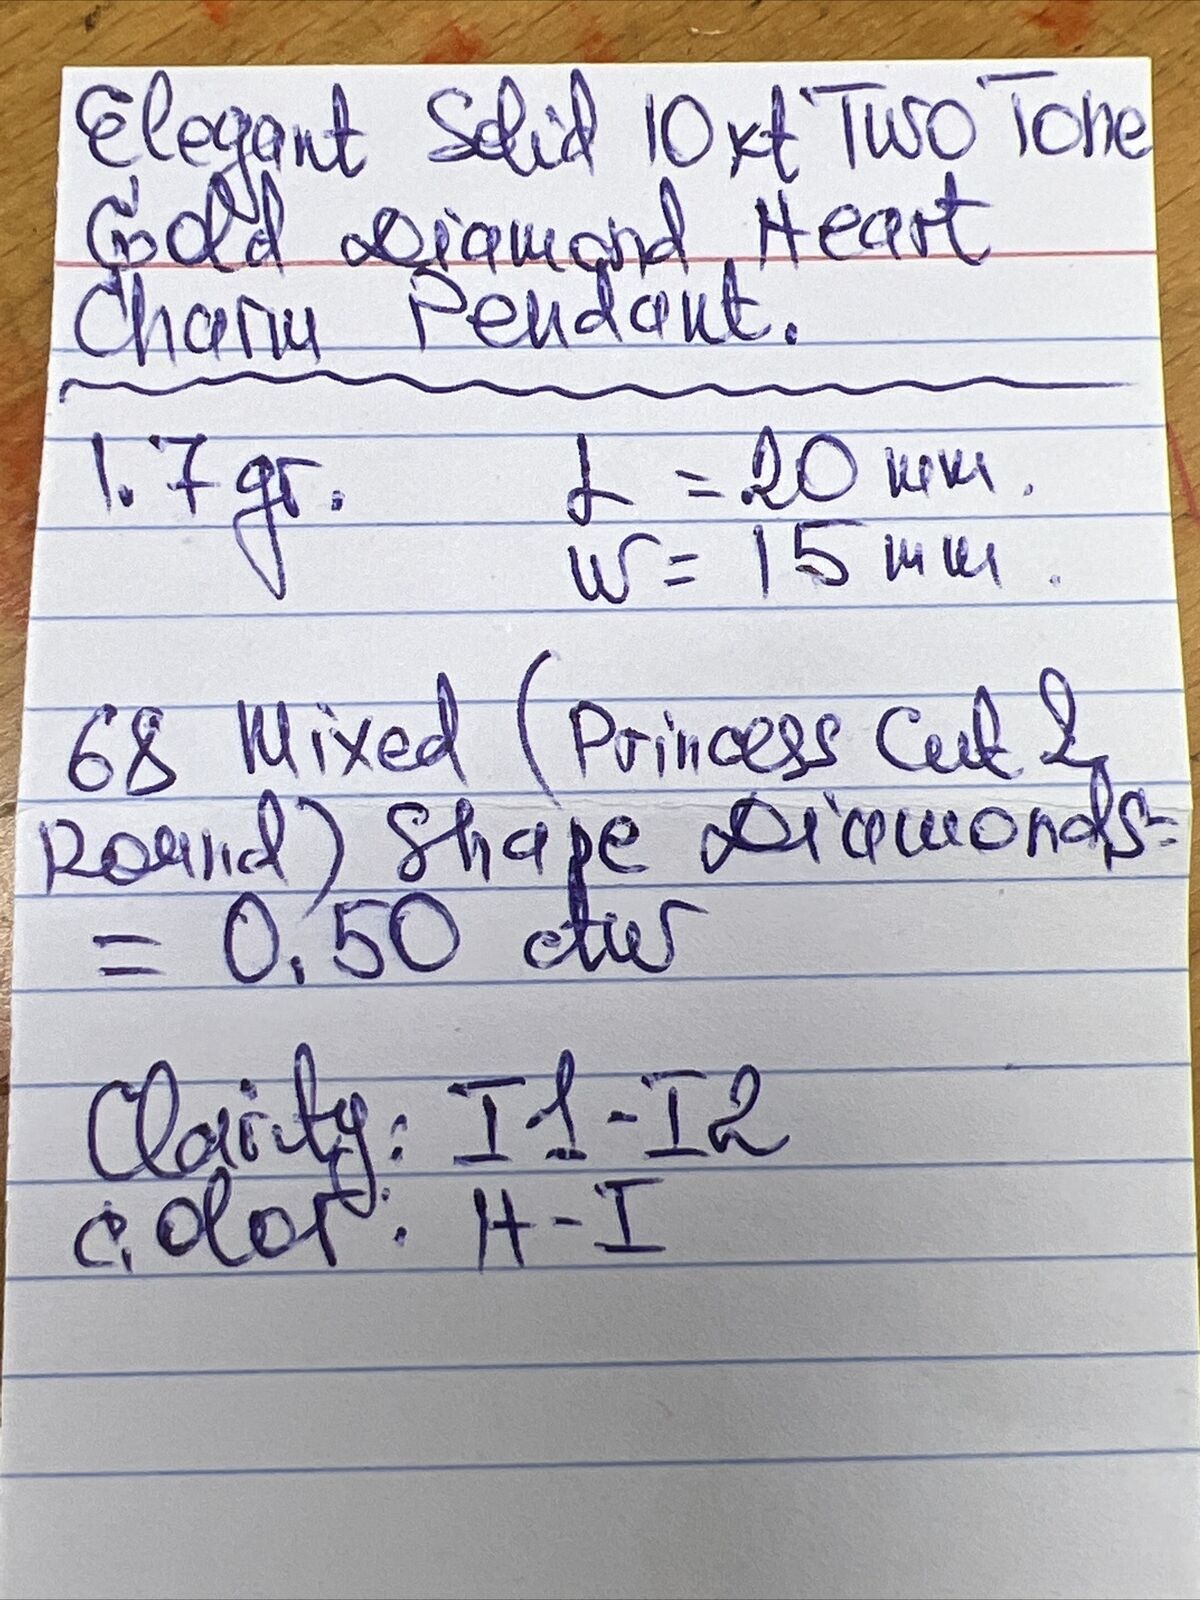 Elegant Solid 10kt Two Tone
Gold Diamond Heart
Charm Pendant.
1.7 gr. L = 20 mm.
W = 15 mm.
68 Mixed (Princess Cut &
Round) Shape Diamonds=
= 0.50 ctw
Clarity: I1-I2
Color: H-I